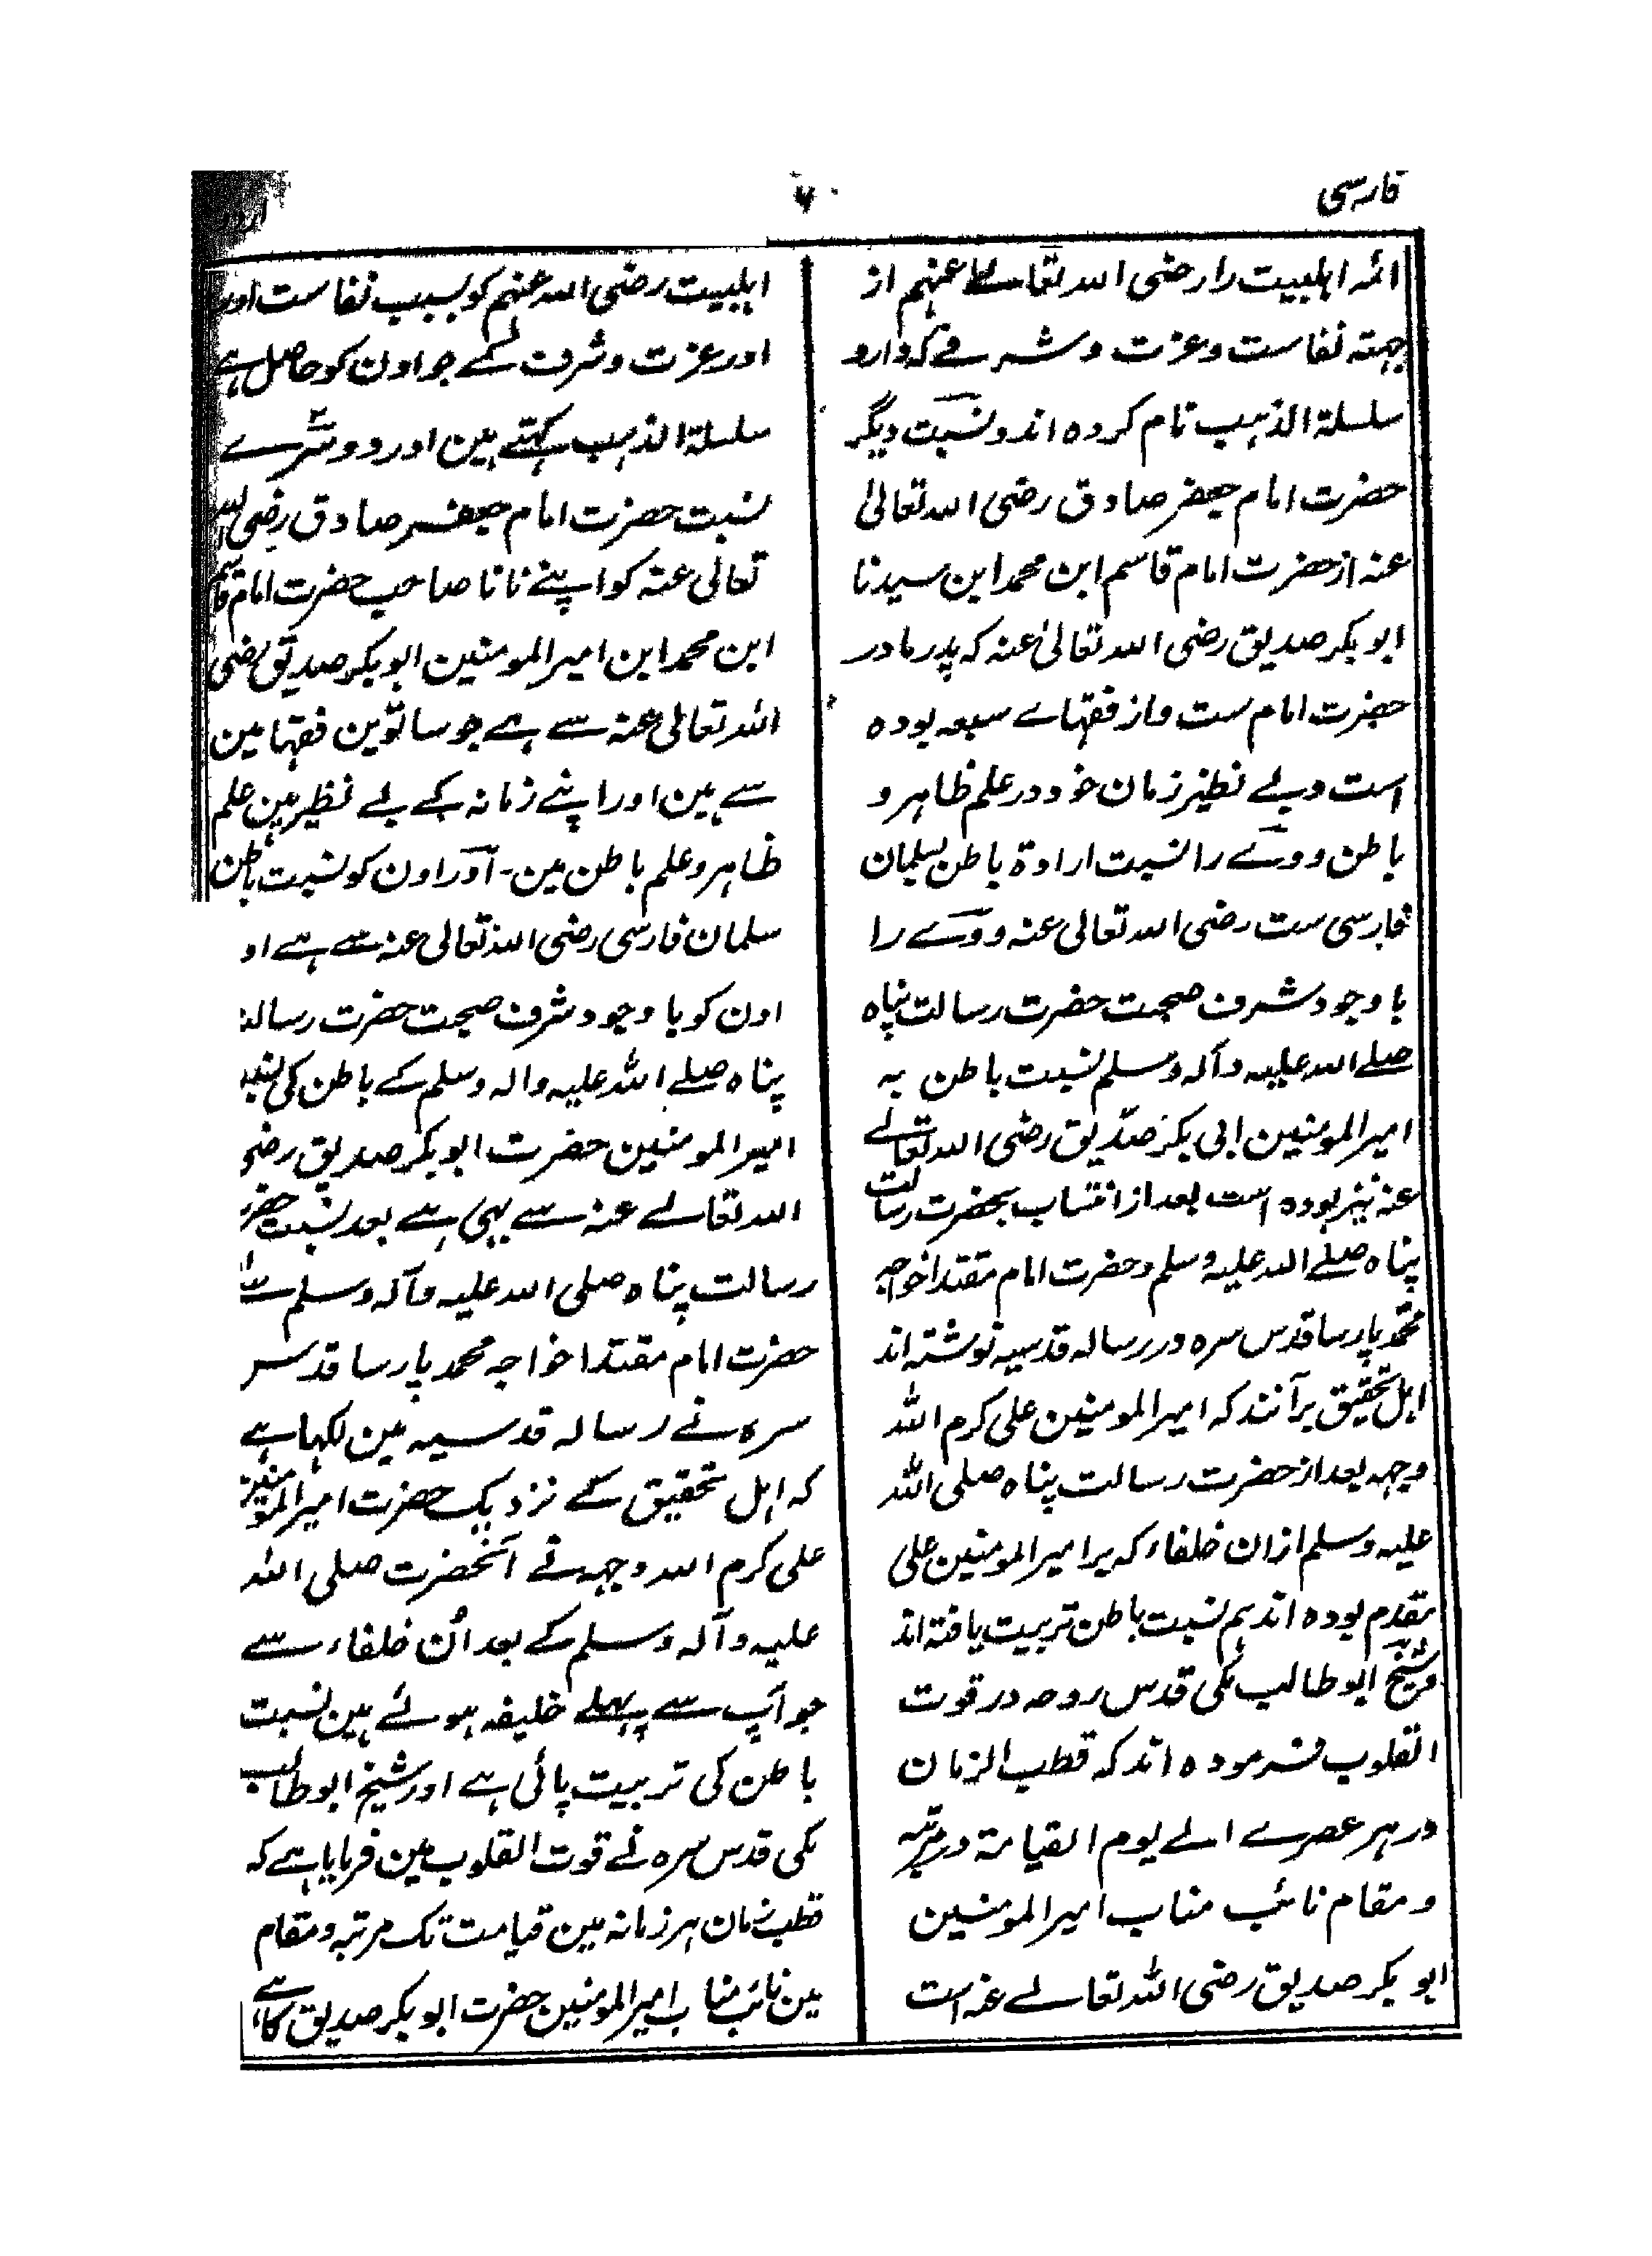 فارسی
۷
اردو
ائمہ اہلبیت را رضی اللہ تعالےٰ عنہم از
جہتہ نفاست وعزت وشرفے کہ دارد
سلسلۃ الذہب نام کردہ اند ونسبت دیگر
حضرت امام جعفر صادق رضی اللہ تعالیٰ
عنہ از حضرت امام قاسم ابن محمد ابن سیدنا
ابوبکر صدیق رضی اللہ تعالیٰ عنہ کہ پدر مادر
حضرت امام ست واز فقہاے سبعہ بودہ
است وبے نظیر زمان خود در علم ظاہر و
باطن ووے را نسبت ارادۃ باطن بسلمان
فارسی ست رضی اللہ تعالی عنہ ووے را
باوجود شرف صحبت حضرت رسالت پناہ
صلے اللہ علیہ وآلہ وسلم نسبت باطن بہ
امیر المومنین ابی بکر صدّیق رضی اللہ تعالے
عنہ نیز بودہ است بعد از انتساب بحضرت رسالت
پناہ صلے اللہ علیہ وسلم وحضرت امام مقتدا خواجہ
محمد پارسا قدس سرہ در رسالہ قدسیہ نوشتہ اند
اہل تحقیق برآنند کہ امیر المومنین علی کرم اللہ
وجہہ بعد از حضرت رسالت پناہ صلی اللہ
علیہ وسلم ازان خلفاء کہ بر امیر المومنین علی
مقدم بودہ اند ہم نسبت باطن تربیت یافتہ اند
وشیخ ابو طالب مکی قدس روحہ در قوت
القلوب فرمودہ اند کہ قطب الزمان
در ہر عصرے الے یوم القیامۃ در مرتبہ
ومقام نائب مناب امیر المومنین
ابوبکر صدیق رضی اللہ تعالے عنہ است
اہلبیت رضی اللہ عنہم کو بسبب نفاست اور
اور عزت وشرف کے جو اون کو حاصل ہے
سلسلۃ الذہب کہتے ہین اور دوسرے
نسبت حضرت امام جعفر صادق رضی اللہ
تعالی عنہ کو اپنے نانا صاحب حضرت امام قاسم
ابن محمد ابن امیر المومنین ابوبکر صدیق رضی
اللہ تعالی عنہ سے ہے جو ساتوین فقہا مین
سے ہین اور اپنے زمانہ کے بے نظیر ہین علم
ظاہر وعلم باطن مین۔ اور اون کو نسبت باطن
سلمان فارسی رضی اللہ تعالی عنہ سے ہے او
اون کو باوجود شرف صحبت حضرت رسالت
پناہ صلے اللہ علیہ والہ وسلم کے باطن کی نسبت
امیر المومنین حضرت ابوبکر صدیق رضی
اللہ تعالے عنہ سے بہی ہے بعد نسبت حضرت
رسالت پناہ صلی اللہ علیہ وآلہ وسلم سے
حضرت امام مقتدا خواجہ محمد پارسا قدس
سرہ نے رسالہ قدسیہ مین لکہا ہے
کہ اہل تحقیق کے نزدیک حضرت امیر المومنین
علی کرم اللہ وجہہ نے آنحضرت صلی اللہ
علیہ وآلہ وسلم کے بعد اُن خلفاء سے
جو آپ سے پہلے خلیفہ ہوئے ہین نسبت
باطن کی تربیت پائی ہے اور شیخ ابو طالب
مکی قدس سرہ نے قوت القلوب مین فرمایا ہے کہ
قطب زمان ہر زمانہ مین قیامت تک مرتبہ ومقام
مین نائب مناب امیر المومنین حضرت ابوبکر صدیق کا ہے